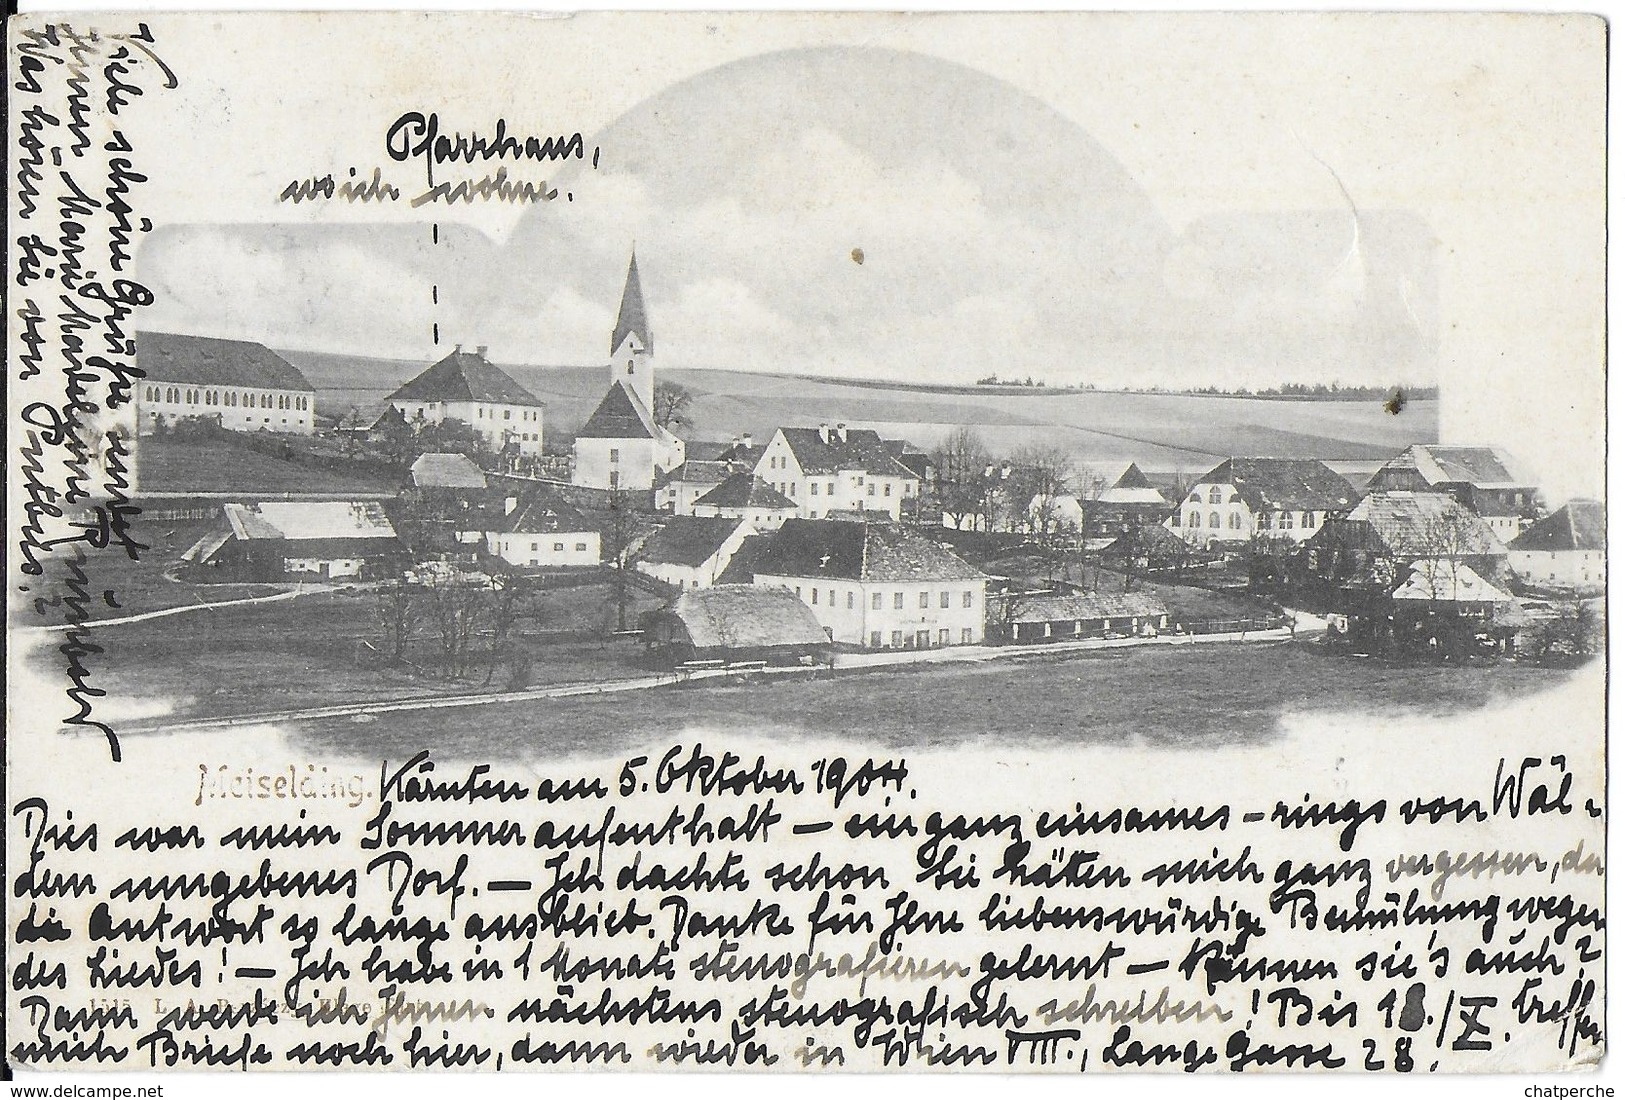 Pfarrhaus,
wo ich wohne.
Meiselding. Kärnten am 5. Oktober 1904.
Dies war mein Sommeraufenthalt – ein ganz einsames – rings von Wäl-
dern umgebenes Dorf. – Ich dachte schon Sie hätten mich ganz vergessen, da
die Antwort so lange ausblieb. Danke für Ihre liebenswürdige Bemühung wegen
des Liedes! – Ich habe in 1 Monate stenografieren gelernt – Können sie's auch?
Dann werde ich Ihnen nächstens stenografisch schreiben! Bis 18./X. treffen
mich Briefe noch hier, dann wieder in Wien VIII., Lange Gasse 28.
Viele schöne Grüße sendet
Ihnen Marie Madeleine
Was hören Sie von Putbus?
1515 L. A.
chatperche